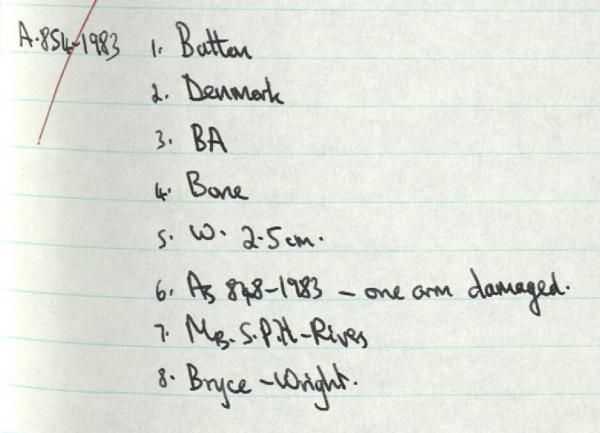 A.854-1983 1. Button
2. Denmark
3. BA
4. Bone
5. W. 2.5cm.
6. As 848-1983 - one arm damaged.
7. Mrs. S.P.H-Rivers
8. Bryce-Wright.